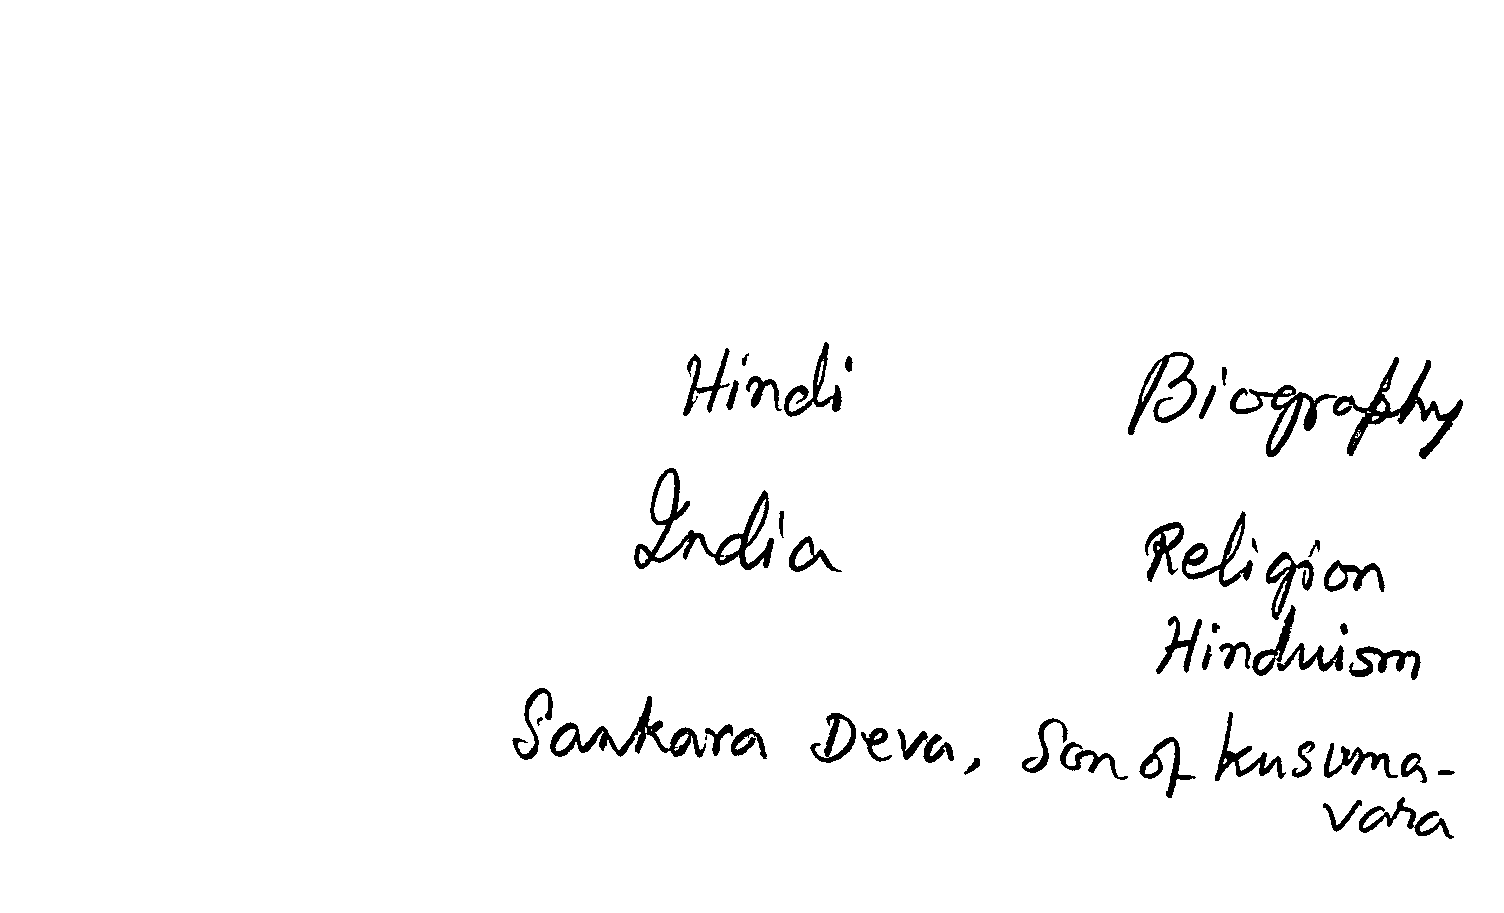 Hindi Biography
India Religion
Hinduism
Sankara Deva, Son of Kusuma-
vara